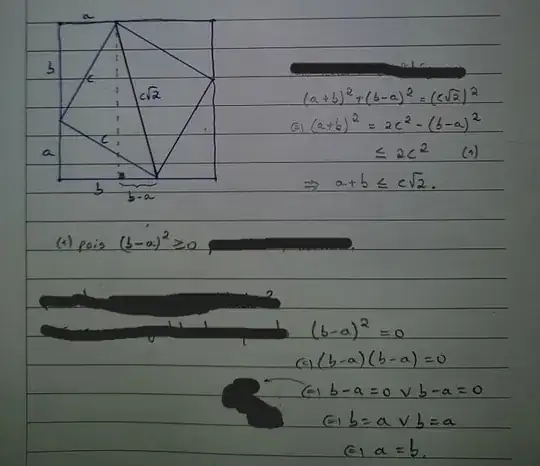 a
b
c
c√2
a
c
b
b-a
(a+b)² + (b-a)² = (c√2)²
⇔ (a+b)² = 2c² - (b-a)²
≤ 2c² (1)
⇒ a+b ≤ c√2.
(1) pois (b-a)² ≥ 0
(b-a)² = 0
⇔ (b-a)(b-a) = 0
⇔ b-a = 0 ∨ b-a = 0
⇔ b = a ∨ b = a
⇔ a = b.